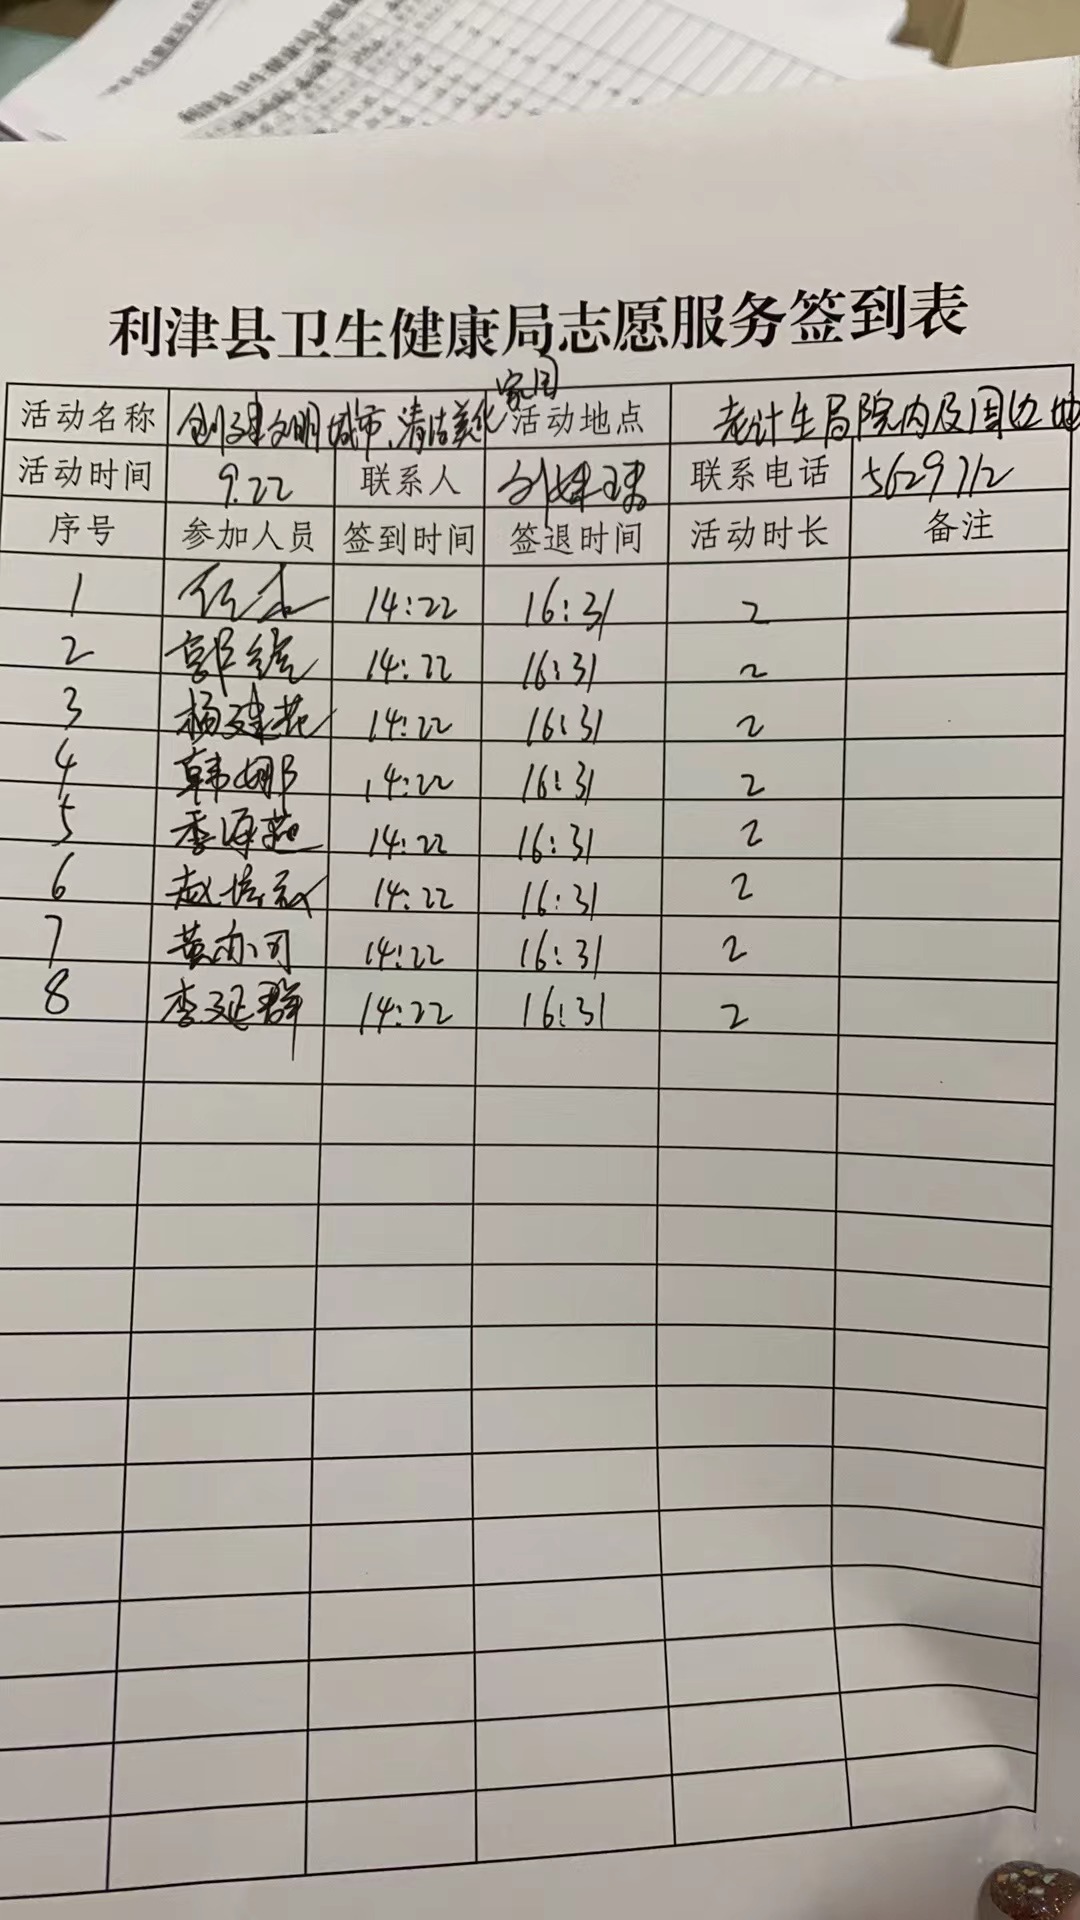 利津县卫生健康局志愿服务签到表
活动名称 创建文明城市、清洁美化家园 活动地点 老计生局院内及周边地
活动时间 9.22 联系人 联系电话 5629712
序号 参加人员 签到时间 签退时间 活动时长 备注
1 14:22 16:31 2
2 郭 14:22 16:31 2
3 杨建花 14:22 16:31 2
4 韩娜 14:22 16:31 2
5 季海燕 14:22 16:31 2
6 赵 14:22 16:31 2
7 黄 14:22 16:31 2
8 李延群 14:22 16:31 2